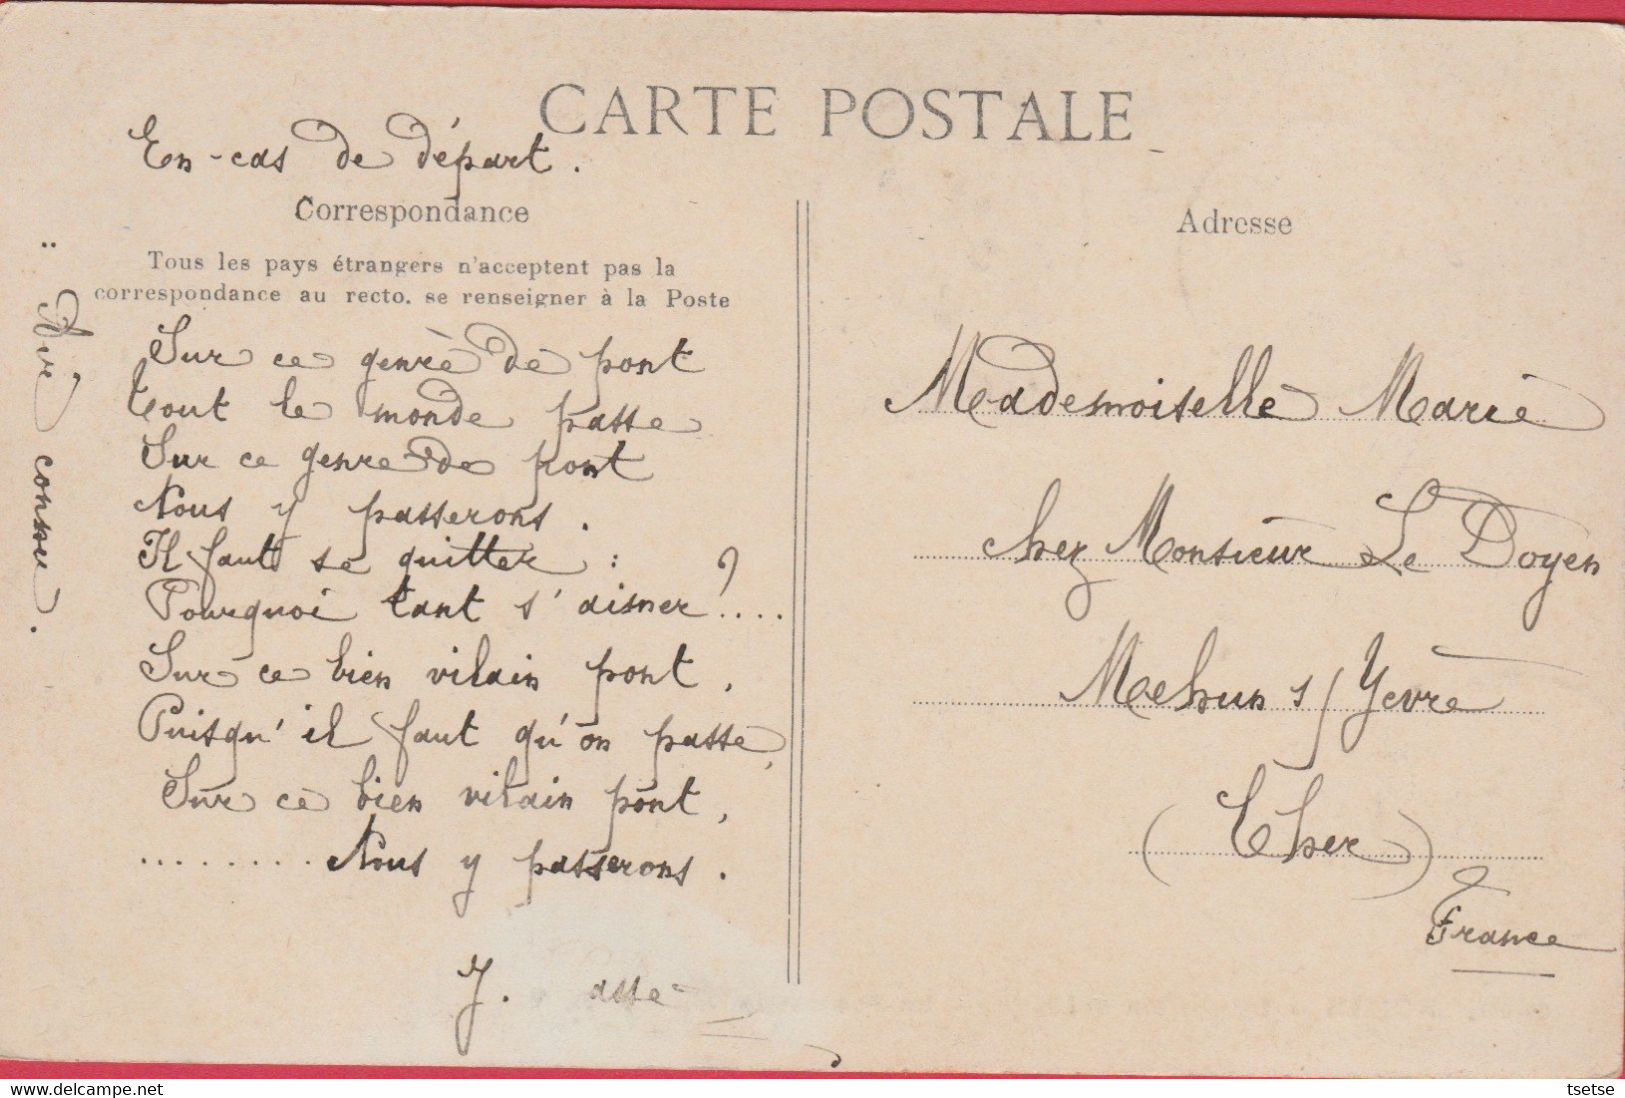 CARTE POSTALE
En-cas de départ.
Correspondance
Tous les pays étrangers n'acceptent pas la
correspondance au recto. se renseigner à la Poste
Sur ce genre de pont
tout le monde passe
Sur ce genre de pont
Nous y passerons.
Il faut se quitter :
Pourquoi tant s'aimer ?....
Sur ce bien vilain pont,
Puisqu'il faut qu'on passe,
Sur ce bien vilain pont,
......... Nous y passerons.
J. asse
Air connu.
Adresse
Mademoiselle Marie
chez Monsieur Le Doyen
Mehun s/ Yèvre
(Cher)
France
tsetse